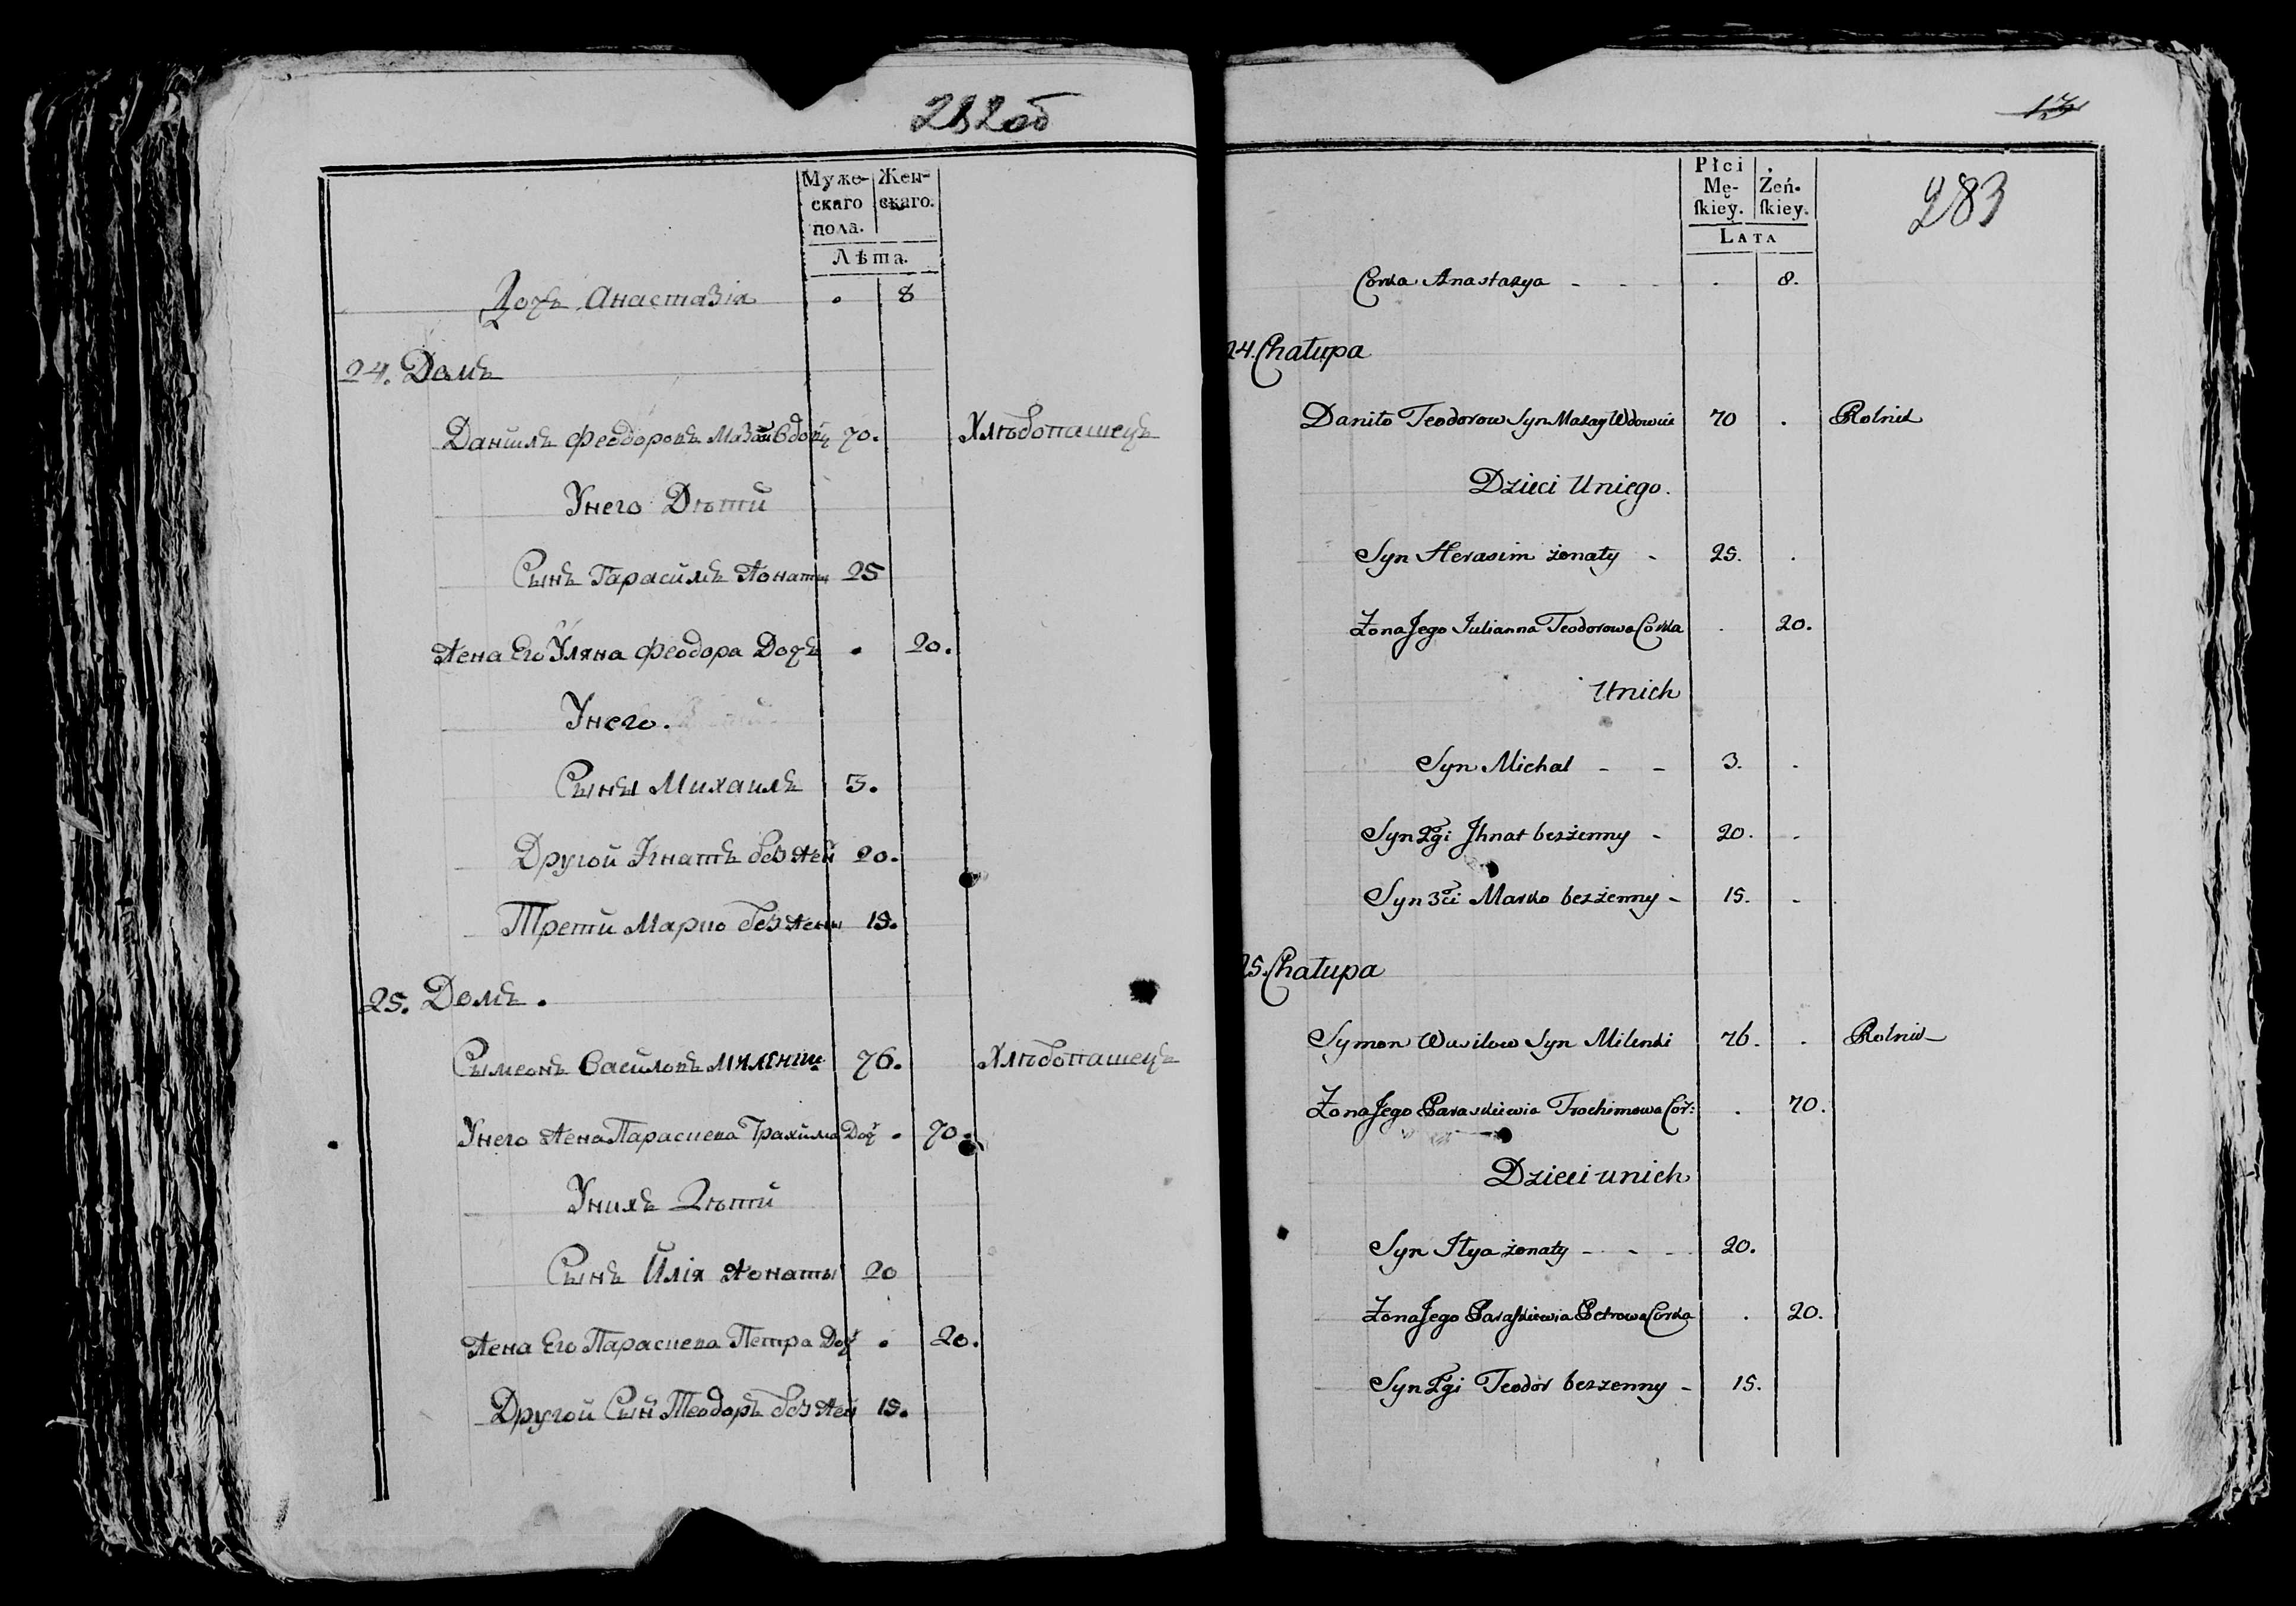 282об
Муже-
скаго
пола.
Жен-
скаго.
Лѣта.
Дочь Анастазія . 8
24. Домъ
Данилъ Феодоровъ Мазай Вдовец 70. Хлѣбопашецъ
Унего Дѣти
Сынъ Гарасимъ Жонаты 25
Жена Его Уляна Феодора Дочь . 20.
Унего.
Сыны Михаилъ 3.
Другой Игнатъ без жен 20.
Трети Марко без жены 15.
25. Домъ.
Сымеонъ Василовъ 76. Хлѣбопашецъ
Унего Жена Параскева Трахима Доч . 70.
Унихъ Дѣти
Сынъ Илія Жонаты 20
Жена Его Параскева Петра Доч . 20.
Другой Сын Теодоръ без жен 15.
17
283
Płci
Mę-
ſkiey.
Żeń-
ſkiey.
LATA
Corka Anastazya - - - . 8.
24. Chałupa
Daniło Teodorow Syn Mazay Wdowiec 70 . Rolnik
Dzieci Uniego.
Syn Herasim żonaty - 25. .
Żona Jego Julianna Teodorowa Corka . 20.
Unich
Syn Michał - - 3. .
Syn 2gi Jhnat bezżenny - 20. .
Syn 3ci Marko bezżenny - 15. .
25. Chałupa
Symon Wasilow Syn Milenki 76. . Rolnik
Żona Jego Paraskiewia Trochimowa Cor: . 70.
Dzieci unich
Syn Ilya żonaty - - - 20.
Żona Jego Paraſkiewia Petrowa Corka . 20.
Syn 2gi Teodor bezżenny - 15.